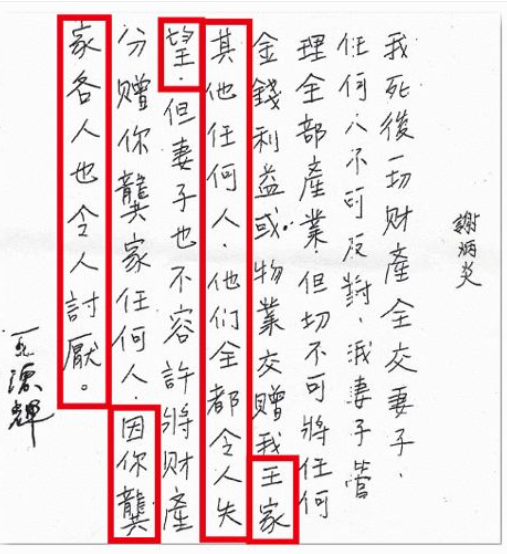 謝炳炎
我死後一切财產全交妻子.
任何人不可反對,我妻子管
理全部產業但切不可將任何
金錢利益或物業交赠我王家
其他任何人.他们全都令人失
望.但妻子也不容許將财產
分赠你龔家任何人.因你龔
家各人也令人討厭。
王德輝